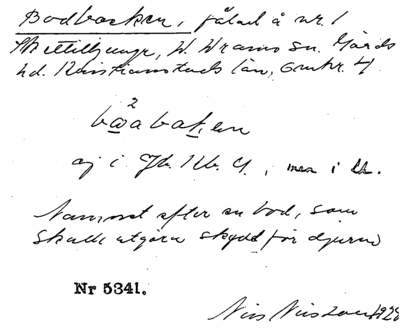 Bodbacken, fälad å nr. 1
Skättilljunga, W. Wrams sn. Gärds
hd. Kristianstads län, Gmkr. 4
2
bωabaḱen
ej i Jb. Ub. G., men i
Namnet efter en bod, som
skulle utgöra skydd för djuren
Nr 5341.
Nils Nilsson 1928